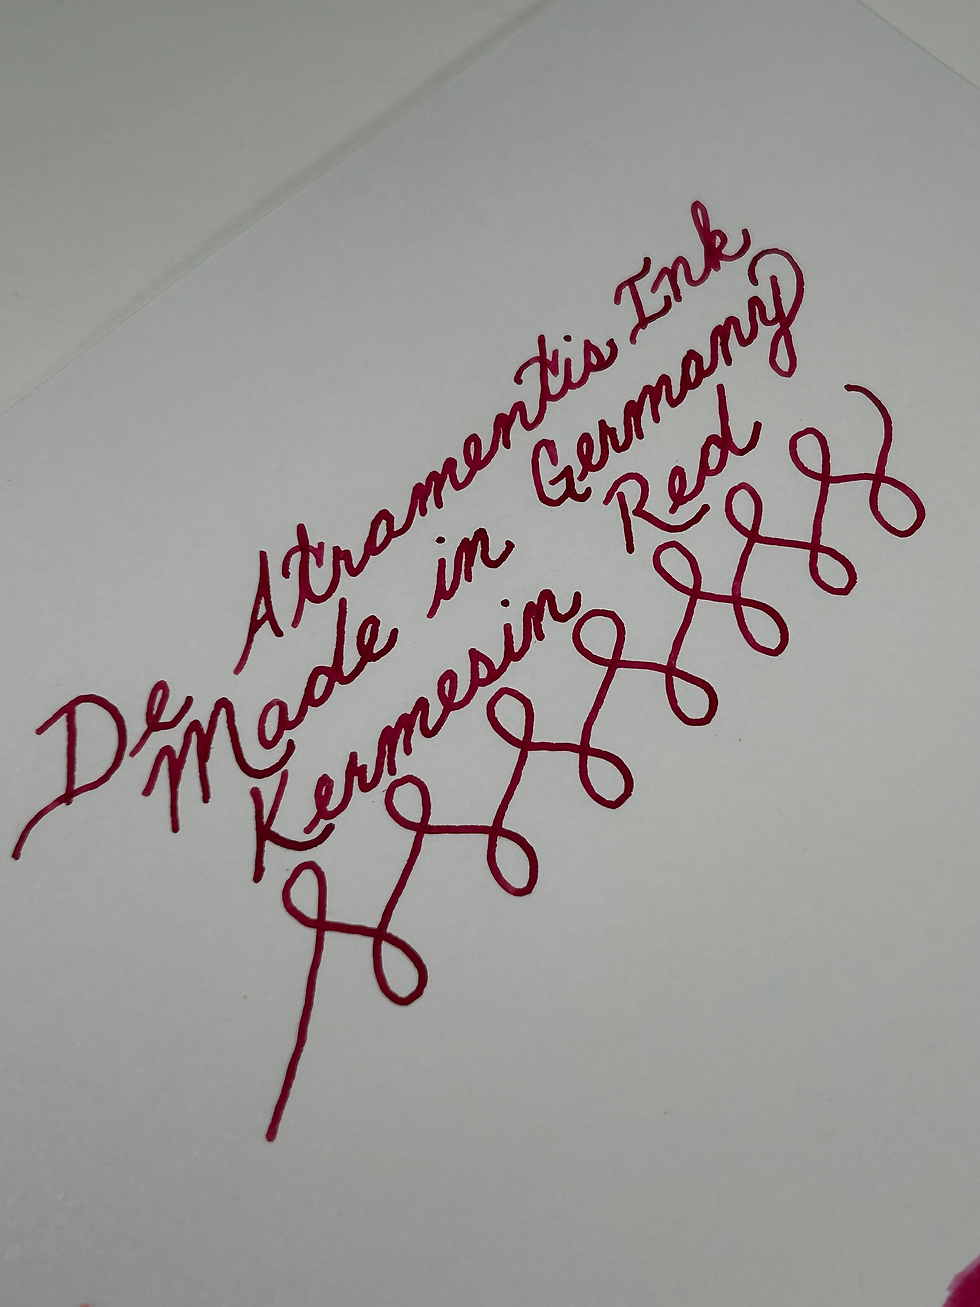 De Atramentis Ink
Made in Germany
Kermesin Red